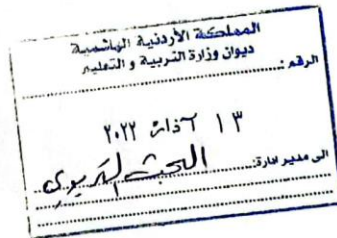 المملكة الأردنية الهاشمية
ديوان وزارة التربية و التعليم
الرقم :
١٣ آذار ٢٠٢٢
الى مدير ادارة: البحث التربوي